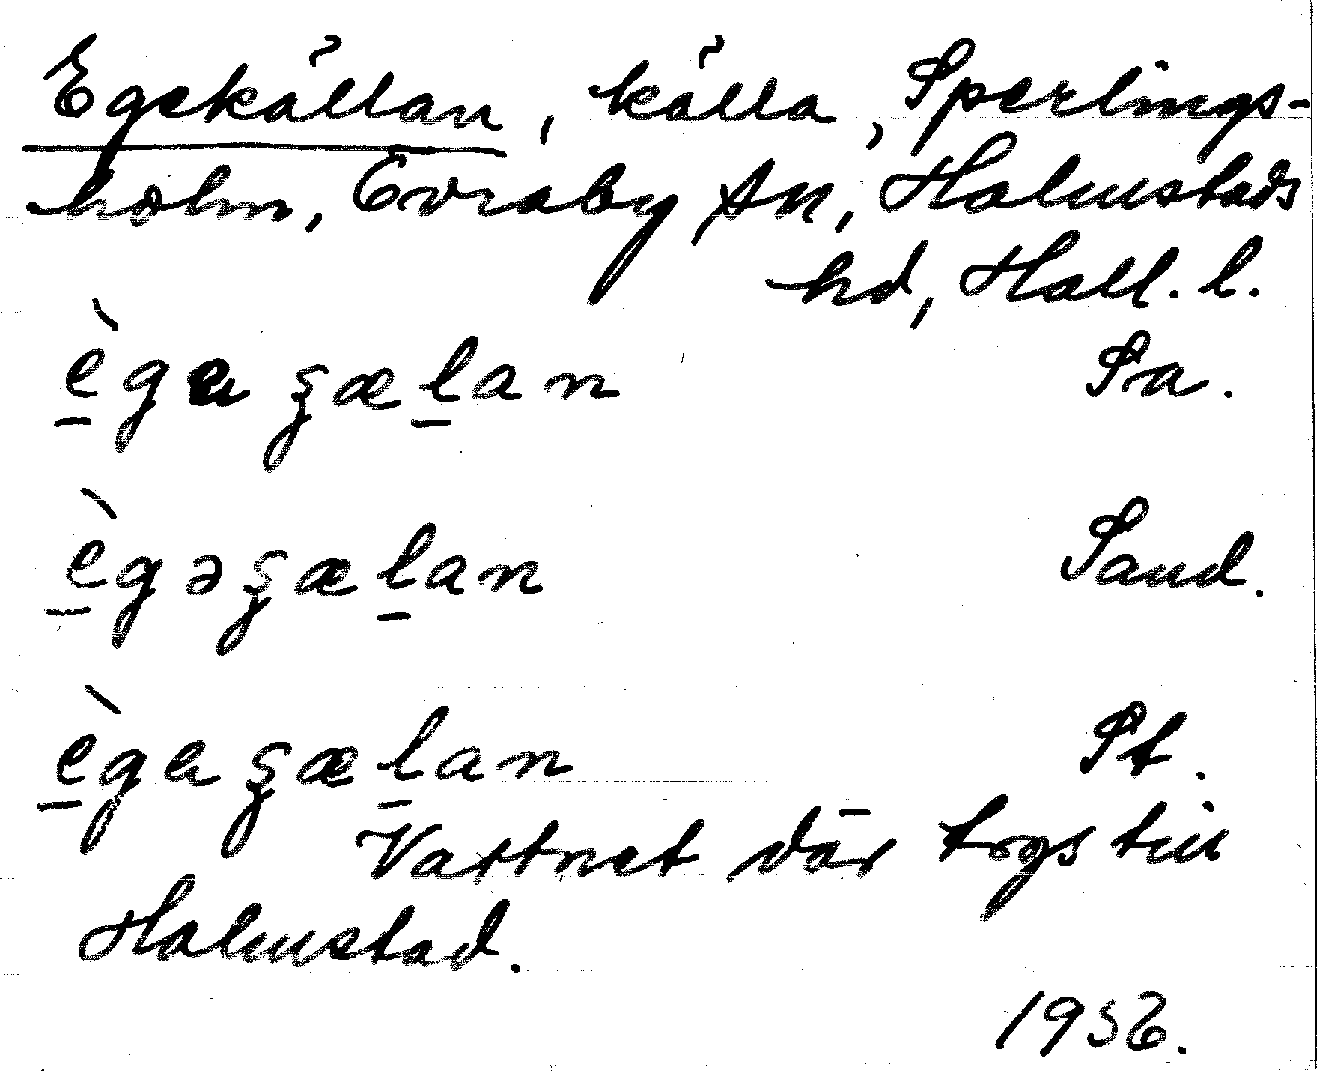 Egekällan, källa, Sperlings-
holm, Övraby sn, Halmstads
hd, Hall. l.
ègaʒælan Sa.
ègəʒælan Sand.
ègaʒælan St.
Vattnet där togs till
Halmstad.
1952.